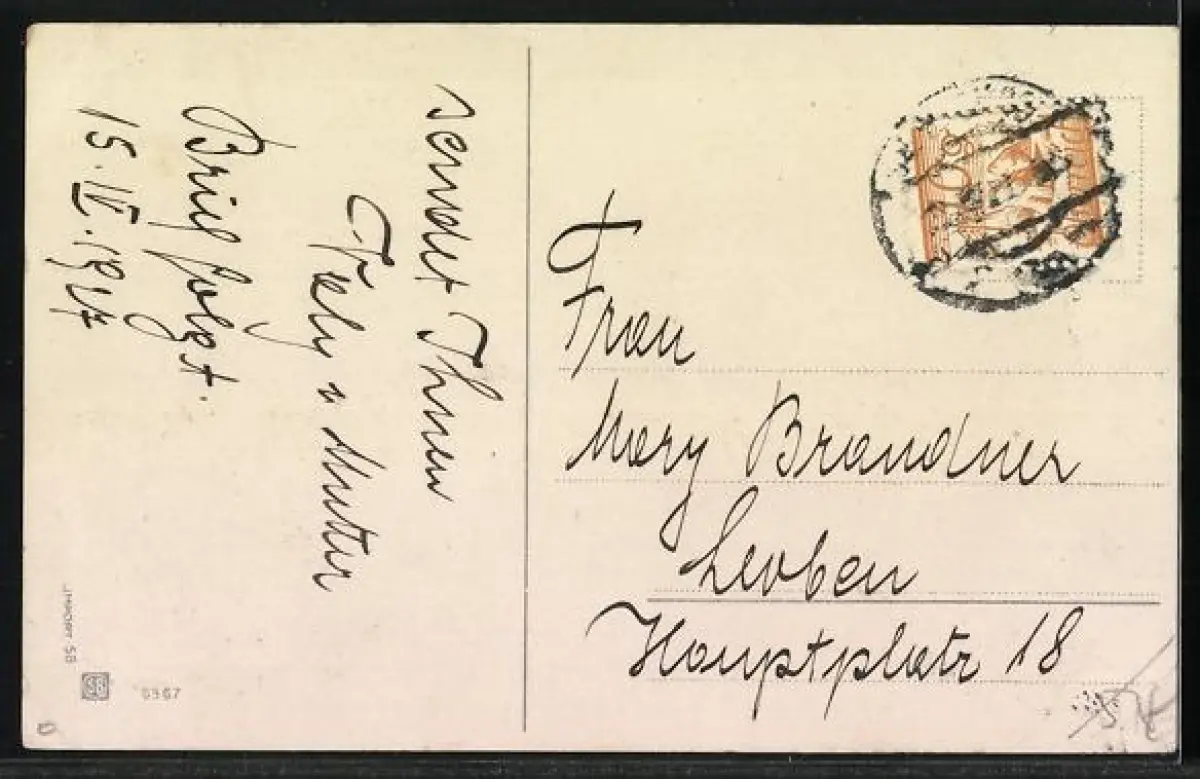 sendet Ihnen
Fely u Mutter
Brief folgt.
15. IV. 1927
Frau
Mary Brandner
Leoben
Hauptplatz 18
IMPORT SB
SB
6967
10